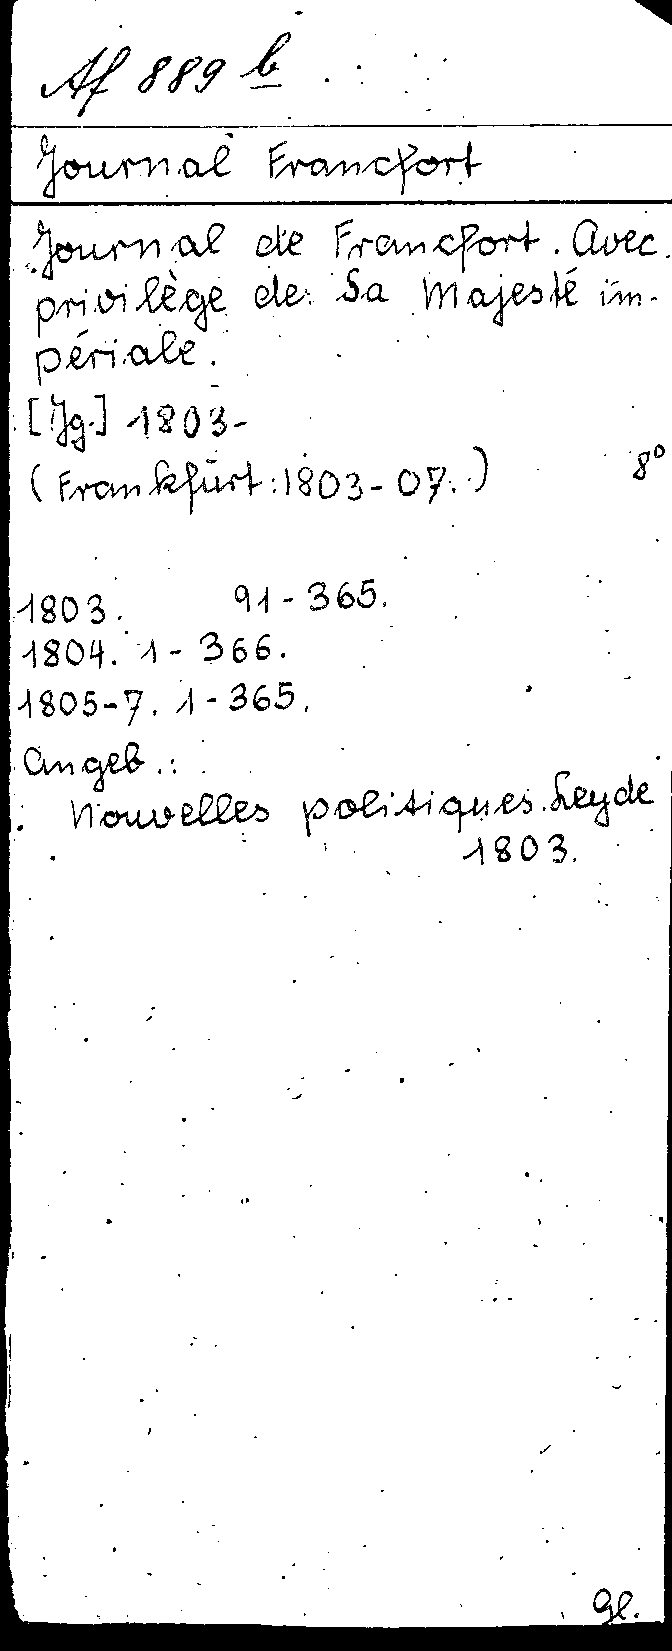 Af 889 b
Journal Francfort
Journal de Francfort. Avec
privilège de Sa Majesté im-
périale.
[Jg.] 1803-
(Frankfurt: 1803-07.) 8°
1803. 91-365.
1804. 1-366.
1805-7. 1-365.
Angeb.:
Nouvelles politiques. Leyde
1803.
Gl.